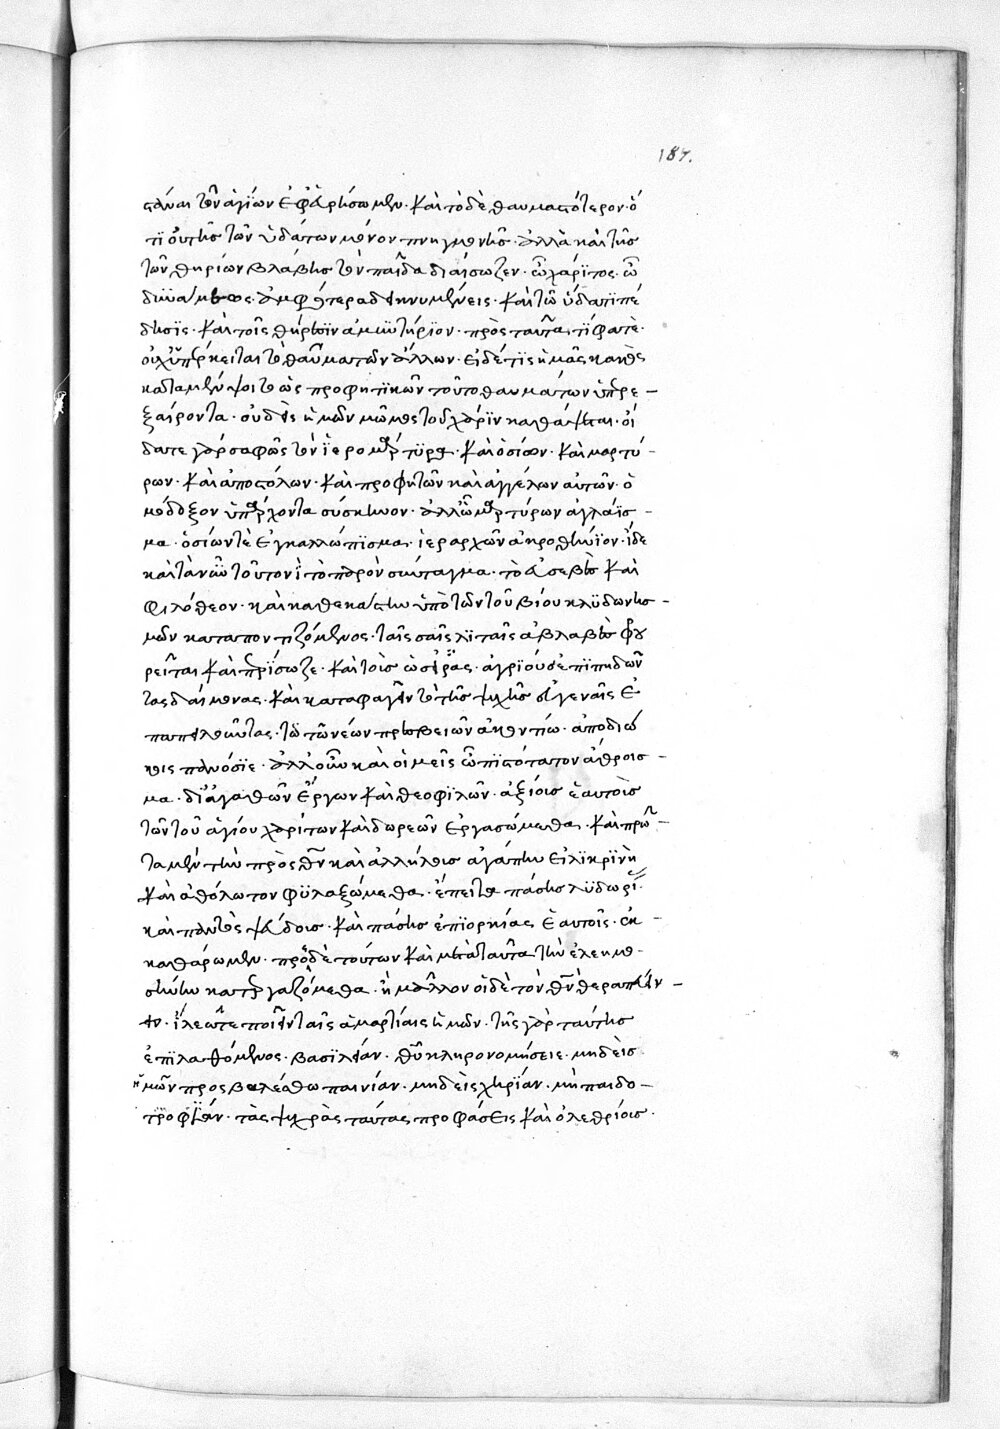 187.
στάναι τὸν ἁγίων ἐφάρησωμεν· καὶ τὸ δὲ θαυμαστότερον· ὅ
τι οὐ τῆς τῶν ὑδάτων μόνον πνιγμονῆς· ἀλλὰ καὶ τῆς
τῶν θηρίων βλάβης τὸν παῖδα διαίσωζεν· ὢ χάριτος· ὢ
δυνάμεως· ἀμφότερα
καὶ τοῖς θηρσὶν ἀμυντήριον· πρὸς ταῦτα τί φατέ·
θαῦμα τῶν ἄλλων· εἰ δέ τις ἡμᾶς
προφητικῶν τοῦτο θαυμάτων ὑπερε –
ξαίροντα· οὐδεὶς ἡμῶν μῶμος τοῦ χάριν καθάψεται· οἴ
δατε γὰρ σαφῶς τὸν ἱερομάρτυρα· καὶ ὁσίων· καὶ μαρτύ –
ρων· καὶ ἀποστόλων· καὶ προφητῶν καὶ ἀγγέλων αὐτῶν· ὁ
μόδοξον ὑπάρχοντα σύσκηνον· ἀλλ' ὦ μαρτύρων ἀγλάϊσ –
μα· ὁσίων τὲ ἐγκαλλώπισμα· ἱεραρχῶν ἀκροθήνιον· ἴδε
καὶ τανῦν τοῦτον τὸ παρὸν σύνταγμα· τὸ εὐσεβὲς καὶ
φιλόθεον· καὶ καθεκάστην ὑπὸ τῶν τοῦ βίου κλυδωνισ –
μῶν καταποντιζόμενος· ταῖς σαῖς λιταῖς ἀβλαβὲς φρου
ρεῖται καὶ περίσωζε· καὶ τοὺς ὡς θῆρας· ἀγρίους ἐπιπηδῶν
τας δαίμονας· καὶ καταφαγεῖν τὸ τῆς ψυχῆς εὐγεναῖς ἐ
παπειλοῦντας· τῶ τῶν σῶν πρεσβειῶν ἀκοντίω· ἀποδιώ
κοις πανόσιε· ἀλλ' οὖν καὶ οἱμεῖς ὦ πιστότατον ἄθροισ –
μα· δι' ἀγαθῶν ἔργων καὶ θεοφιλῶν· ἀξίοις ἑαυτοὺς
τῶν τοῦ ἁγίου χαρίτων καὶ δωρεῶν ἐργασώμεθα· καὶ πρῶ –
τα μὲν τὴν πρὸς θεὸν καὶ ἀλλήλους ἀγάπην εἰλικρινῆ
καὶ ἀθόλωτον φυλαξώμεθα· ἔπειτα πάσης λυδωρί
καὶ παντὸς ψεύδοις· καὶ πάσης ἐπιορκίας ἑαυτοῖς· ἐκ –
καθάρωμεν· πρὸ δὲ τούτων καὶ μετὰ ταῦτα τὴν ἐλεημο –
σύνην κατεργαζόμεθα· ἢ μᾶλλον οἰδὲ τὸν θεὸν θεραπεύειν –
ἵλεώ τε ποιεῖν ταῖς ἁμαρτίαις ἡμῶν· τῆς γὰρ ταύτης
ἐπιλαθόμενος· βασιλείαν· θεοῦ κληρονομήσειε· μηδεὶς
ἡμῶν προσβαλέσθω πενίαν· μηδεὶς χηρίαν· μὴ παιδο –
τροφίαν· τὰς ψυχρὰς ταύτας προφάσεις καὶ ὀλεθρίοις·